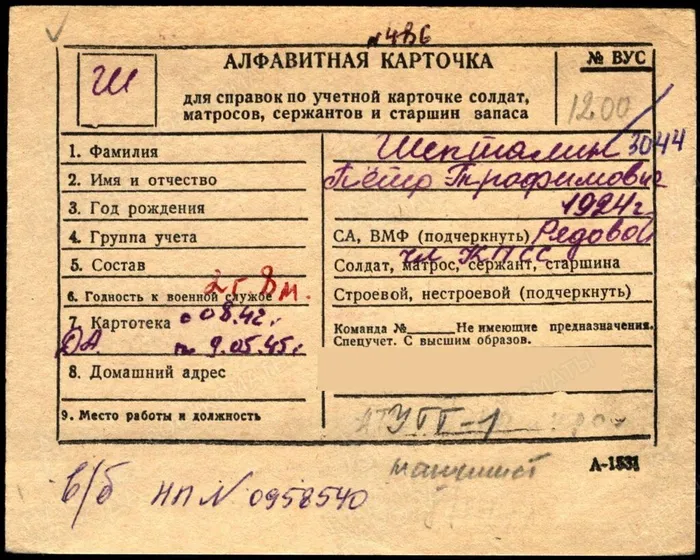 № 486
АЛФАВИТНАЯ КАРТОЧКА
№ ВУС
Ш
для справок по учетной карточке солдат,
матросов, сержантов и старшин запаса
1200
3044
1. Фамилия Шепталин
2. Имя и отчество Пётр Трофимович
3. Год рождения 1924 г
4. Группа учета СА, ВМФ (подчеркнуть) Рядовой
чл КПСС
5. Состав Солдат, матрос, сержант, старшина
258 м.
6. Годность к военной службе Строевой, нестроевой (подчеркнуть)
7. Картотека с 08.42 г. Команда №______ Не имеющие предназначения.
ДА по 9.05.45 г Спецучет. С высшим образов.
8. Домашний адрес
9. Место работы и должность УТТ-1
машинист
А-1531
в/б НП № 0958540